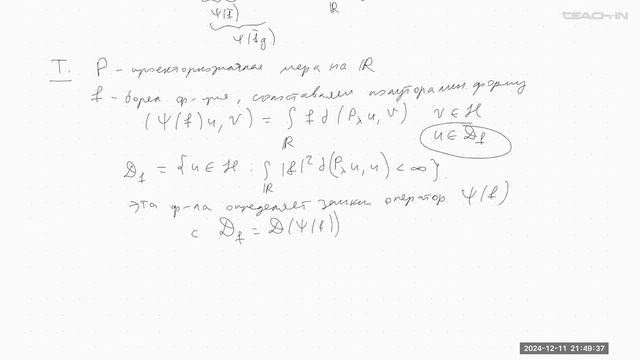 Ψ(f̄)
ℝ
TEACH-IN
Ψ(f̄g)
T. P - проекторнозначная мера на ℝ
f - борел. ф-ция, сопоставляем полуторалин. форму
(Ψ(f)u, v) = ∫ f d(P_λ u, v) v ∈ ℋ
ℝ
u ∈ D_f
D_f = {u ∈ ℋ : ∫ |f|² d(P_λ u, u) < ∞}.
ℝ
Эта ф-ла определяет замкн оператор Ψ(f)
с D_f = D(Ψ(f))
2024-12-11 21:49:37